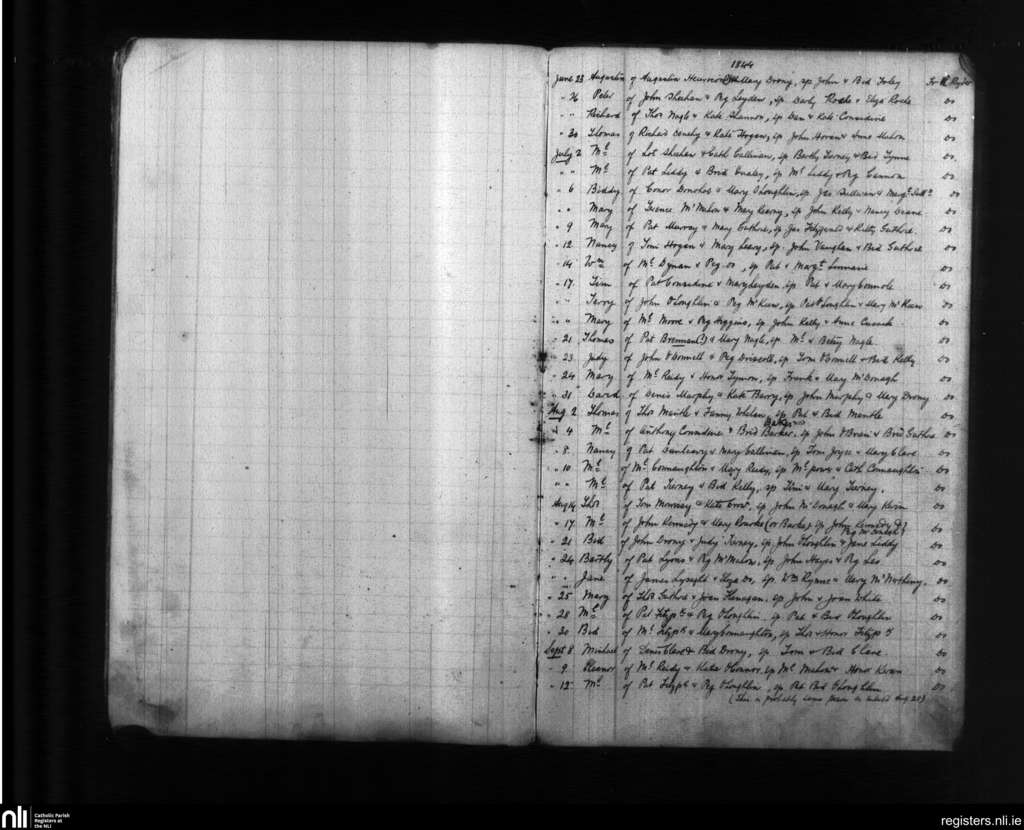 1844
June 23 Augustin of Augustin & Mary Drony, sp John & Bid Foley Fr Ryder
" 26 Peter of John Sheehan & Peg Leyden, sp Darby Roche & Eliza Roche Do
" " Richard of Thos Nagle & Kate Shannon, sp Dan & Kate Considine Do
" 30 Thomas of Richard & Kate Hogan, sp John Horan & Anne Mahon Do
July 2 Ml of Lot Sheehan & Cath Callinan, sp Bartly Tierney & Bid Do
" " Ml of Pat Liddy & Brid, sp Ml Liddy & Peg Cannon Do
" 6 Biddy of Conor Donohoe & Mary O'Loughlin, sp Jas Sullivan & Margt Do
" " Mary of Terence McMahon & Mary Kearny, sp John Kelly & Nancy Do
" 9 Mary of Pat Murray & Mary Guthrie, sp Jas Fitzgerald & Kitty Guthrie. Do
" 12 Nancy of Tom Hogan & Mary Leary, sp. John Vaughan & Bid Guthrie Do
" 14 Wm of Ml Dynan & Peg Do, sp Pat & Margt Linnane Do
" 17. Tim of Pat Considine & Mary Leyden sp. Pat & Mary Connole Do
" " Terry of John O'Loughlin & Peg McKeon, sp Pat O'Loughlin & Mary McKeon Do
" " Mary of Ml Moore & Peg Higgins, sp. John Kelly & Anne Cusack Do
" 21 Thomas of Pat Brennan(?) & Mary Nagle, sp Ml & Betsy Nagle Do
" 23 Judy of John O'Connell & Peg Driscoll, sp Tom O'Connell & Bid Kelly Do
" 24 Mary of Ml Reidy & Honor, sp. Frank & Mary McDonagh Do
" 31 David of Denis Murphy & Kate Barry, sp John Murphy & Mary Drony Do
Aug. 2 Thomas of Thos Mantle & Fanny Whelan, sp Pat & Bid Mantle Do
Baker
" 4 Ml of Anthony Considine & Brid Barker, sp John O'Brien & Brid Guthrie Do
" 8. Nancy of Pat & Mary Callinan, sp Tom Joyce & Mary Clare Do
" 10 Ml of Ml Connaughton & Mary Reidy, sp Ml & Cath Connaughton Do
" " Ml of Pat Tierney & Bid Kelly, sp Tim & Mary Tierney. Do
Aug 14 Thos of Tom Morrissy & Kate Crow, sp John McDonagh & Mary Kerin Do
" 17. Ml of John Kennedy & Mary Rourke (or Burke), sp John Kennedy & Do
Peg McDonagh
" 21 Bid of John Drony & Judy Tierney, sp. John O'Loughlin & Jane Liddy Do
" 24 Bartly of Pat Lyons & Peg McMahon, sp John Hayes & Peg Lee Do
" " Jane of James Lysaght & Eliza Do, sp. Wm Rynne & Mary Do
" 25 Mary of Thos Guthrie & Joan Flanagan, sp John & Joan White Do
" 28 Ml of Pat Fitzpk & Peg O'Loughlin, sp Pat & Bid O'Loughlin Do
" 30 Bid of Ml Fitzpk & Mary Connaughton, sp Thos & Honor Fitzpk Do
Sept 8 Michael of Denis Clare & Bid Drony, sp Tom & Bid Clare Do
" 9. Eleanor of Ml Reidy & Kate O'Connor, sp Ml Mahon & Honor Kerin Do
" 12 Ml of Pat Fitzpk & Peg O'Loughlin, sp Pat Bid O'Loughlin Do
(This is probably same person as entered Aug 28)
nli Catholic Parish
Registers at
the NLI
registers.nli.ie